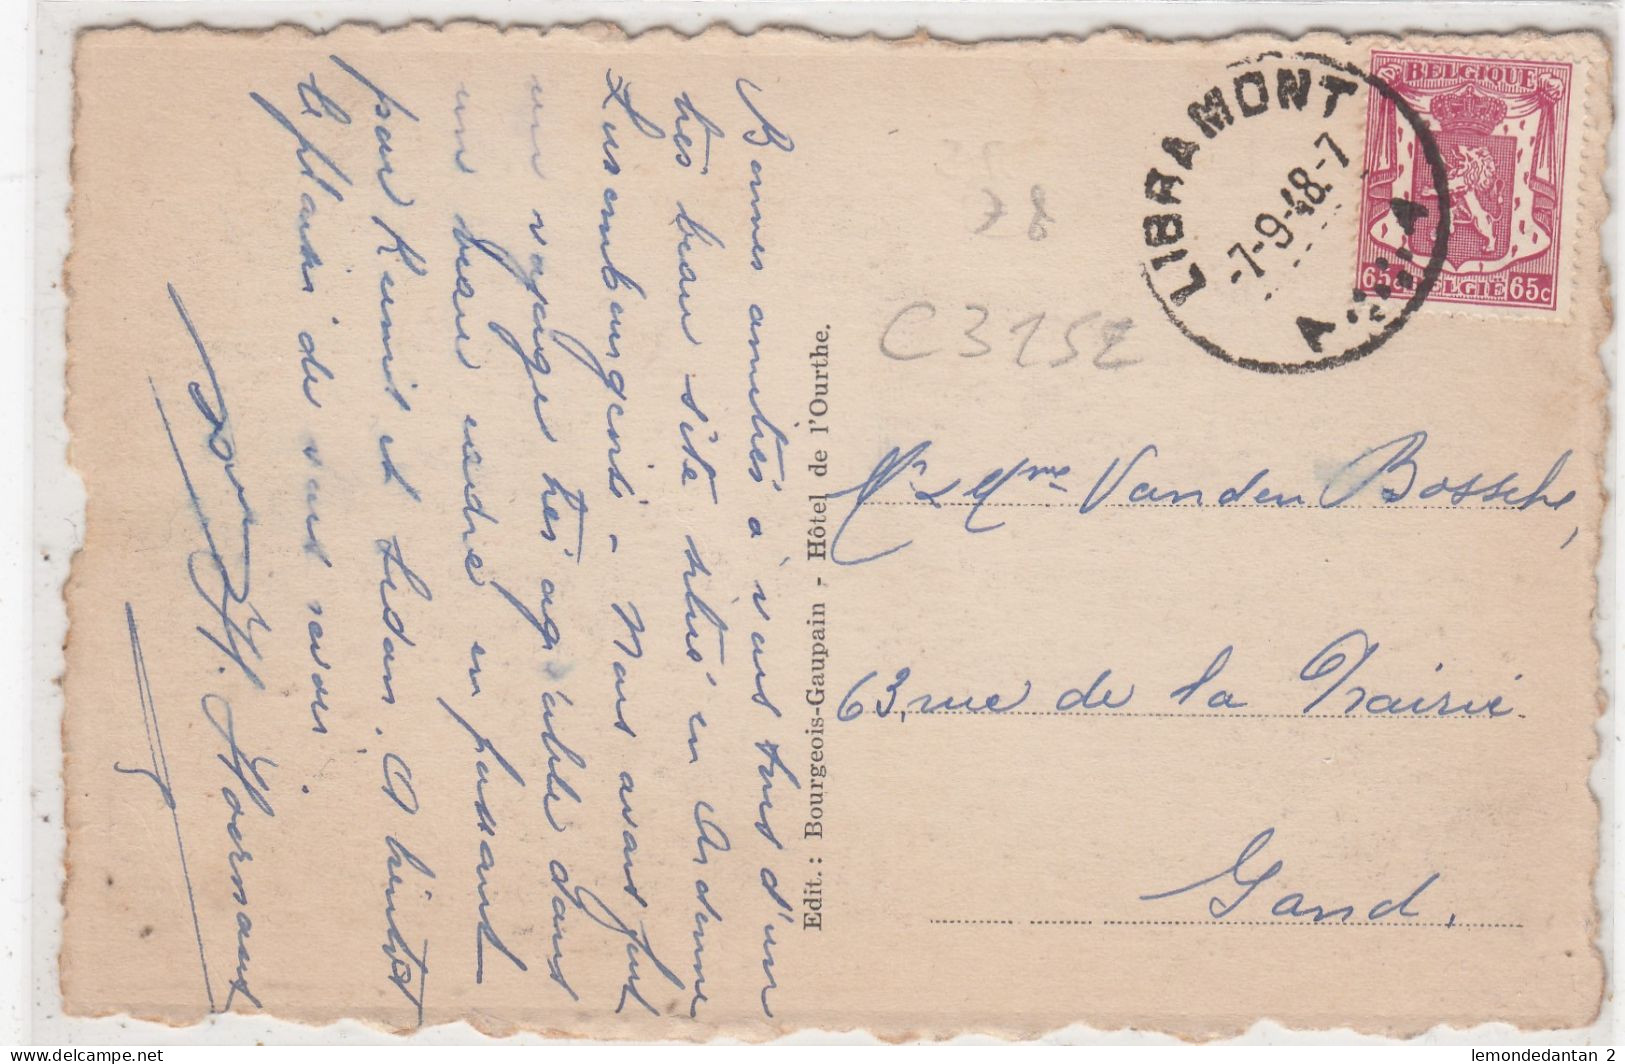 Bonnes amitiés à vous tous d'un
très beau site situé en Ardenne
Luxembourgeois - Nous avons fait
un voyage très agréable dans
un beau cadre en passant
par Reims et Sedan. A bientôt
le plaisir de vous revoir.
H. Hoersaert
Edit. : Bourgeois-Gaupain - Hôtel de l'Ourthe.
78
C3152
LIBRAMONT
-7-9-48.-7
A A
BELGIQUE
65c BELGIE 65c
Mr & Mme Vanden Bossche,
63, rue de la Prairie
Gand.
lemondedantan 2